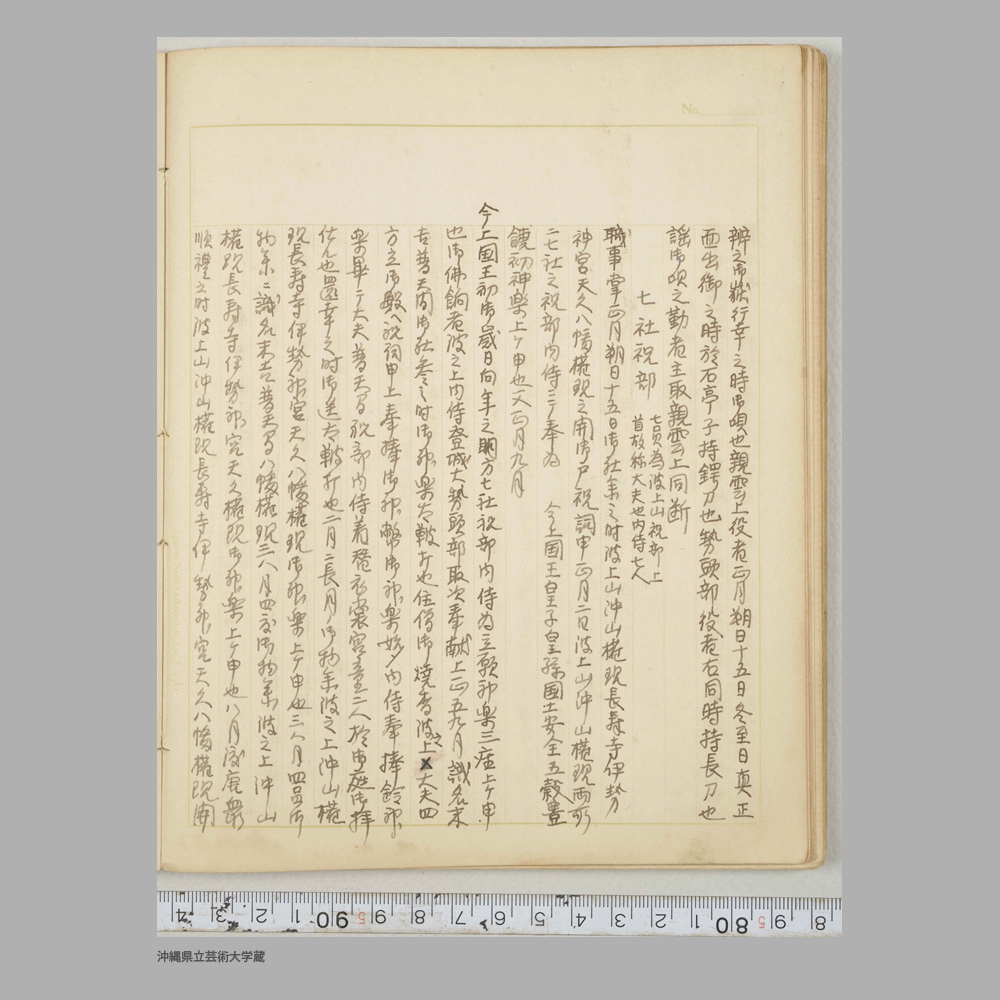 No.
辨之御嶽行幸之時御唄也親雲上役者正月朔日十五日冬至日真正
面出御之時於石亭子持鍔刀也勢頭部役者右同時持長刀也
謡御唄之勤者主取親雲上同断
七社祝部 七員為波上山祝部上
首故称大夫也内侍七人
職事掌正月朔日十五日御社参之時波上山沖山権現長寿寺伊勢
神宮天久八幡権現之開御戸祝詞申正月二日波上山沖山権現両所
二七社之祝部内侍三ヶ奉為 今上国王皇子皇孫国土安全五穀豊
饒初神楽上ケ申也又正月九月
今上国王初御歳日向年之明方七社祝部内侍為立願神楽三座上ケ申
也御佛餉者波之上内侍登城大勢頭部取次奉献上正五九月識名末
吉普天間御社参之時御神楽太鞁打也住僧御焼香波上之大夫四
方立御殿へ祝詞申上奉捧御神幣御神楽始ア内侍奉捧鈴神
楽畢テ大夫普天間祝部内侍着穐衣裳宮童二人於御庭御拝
仕ル也還幸之時御送太鞁打也二月二長月ノ御物参波之上沖山権
現長寿寺伊勢神宮天久八幡権現御神楽上ケ申也三八月四員御
物参ニ識名末吉普天間八幡権現三八月四度御物参波之上沖山
権現長寿寺伊勢神宮天久権現御神楽上ケ申也八月渡唐衆
順禮之时波上山沖山権現長寿寺伊勢神宮天久八幡権現開
4 3 2 1 90 9 8 7 6 5 4 3 2 1 80 9 8
沖縄県立芸術大学蔵